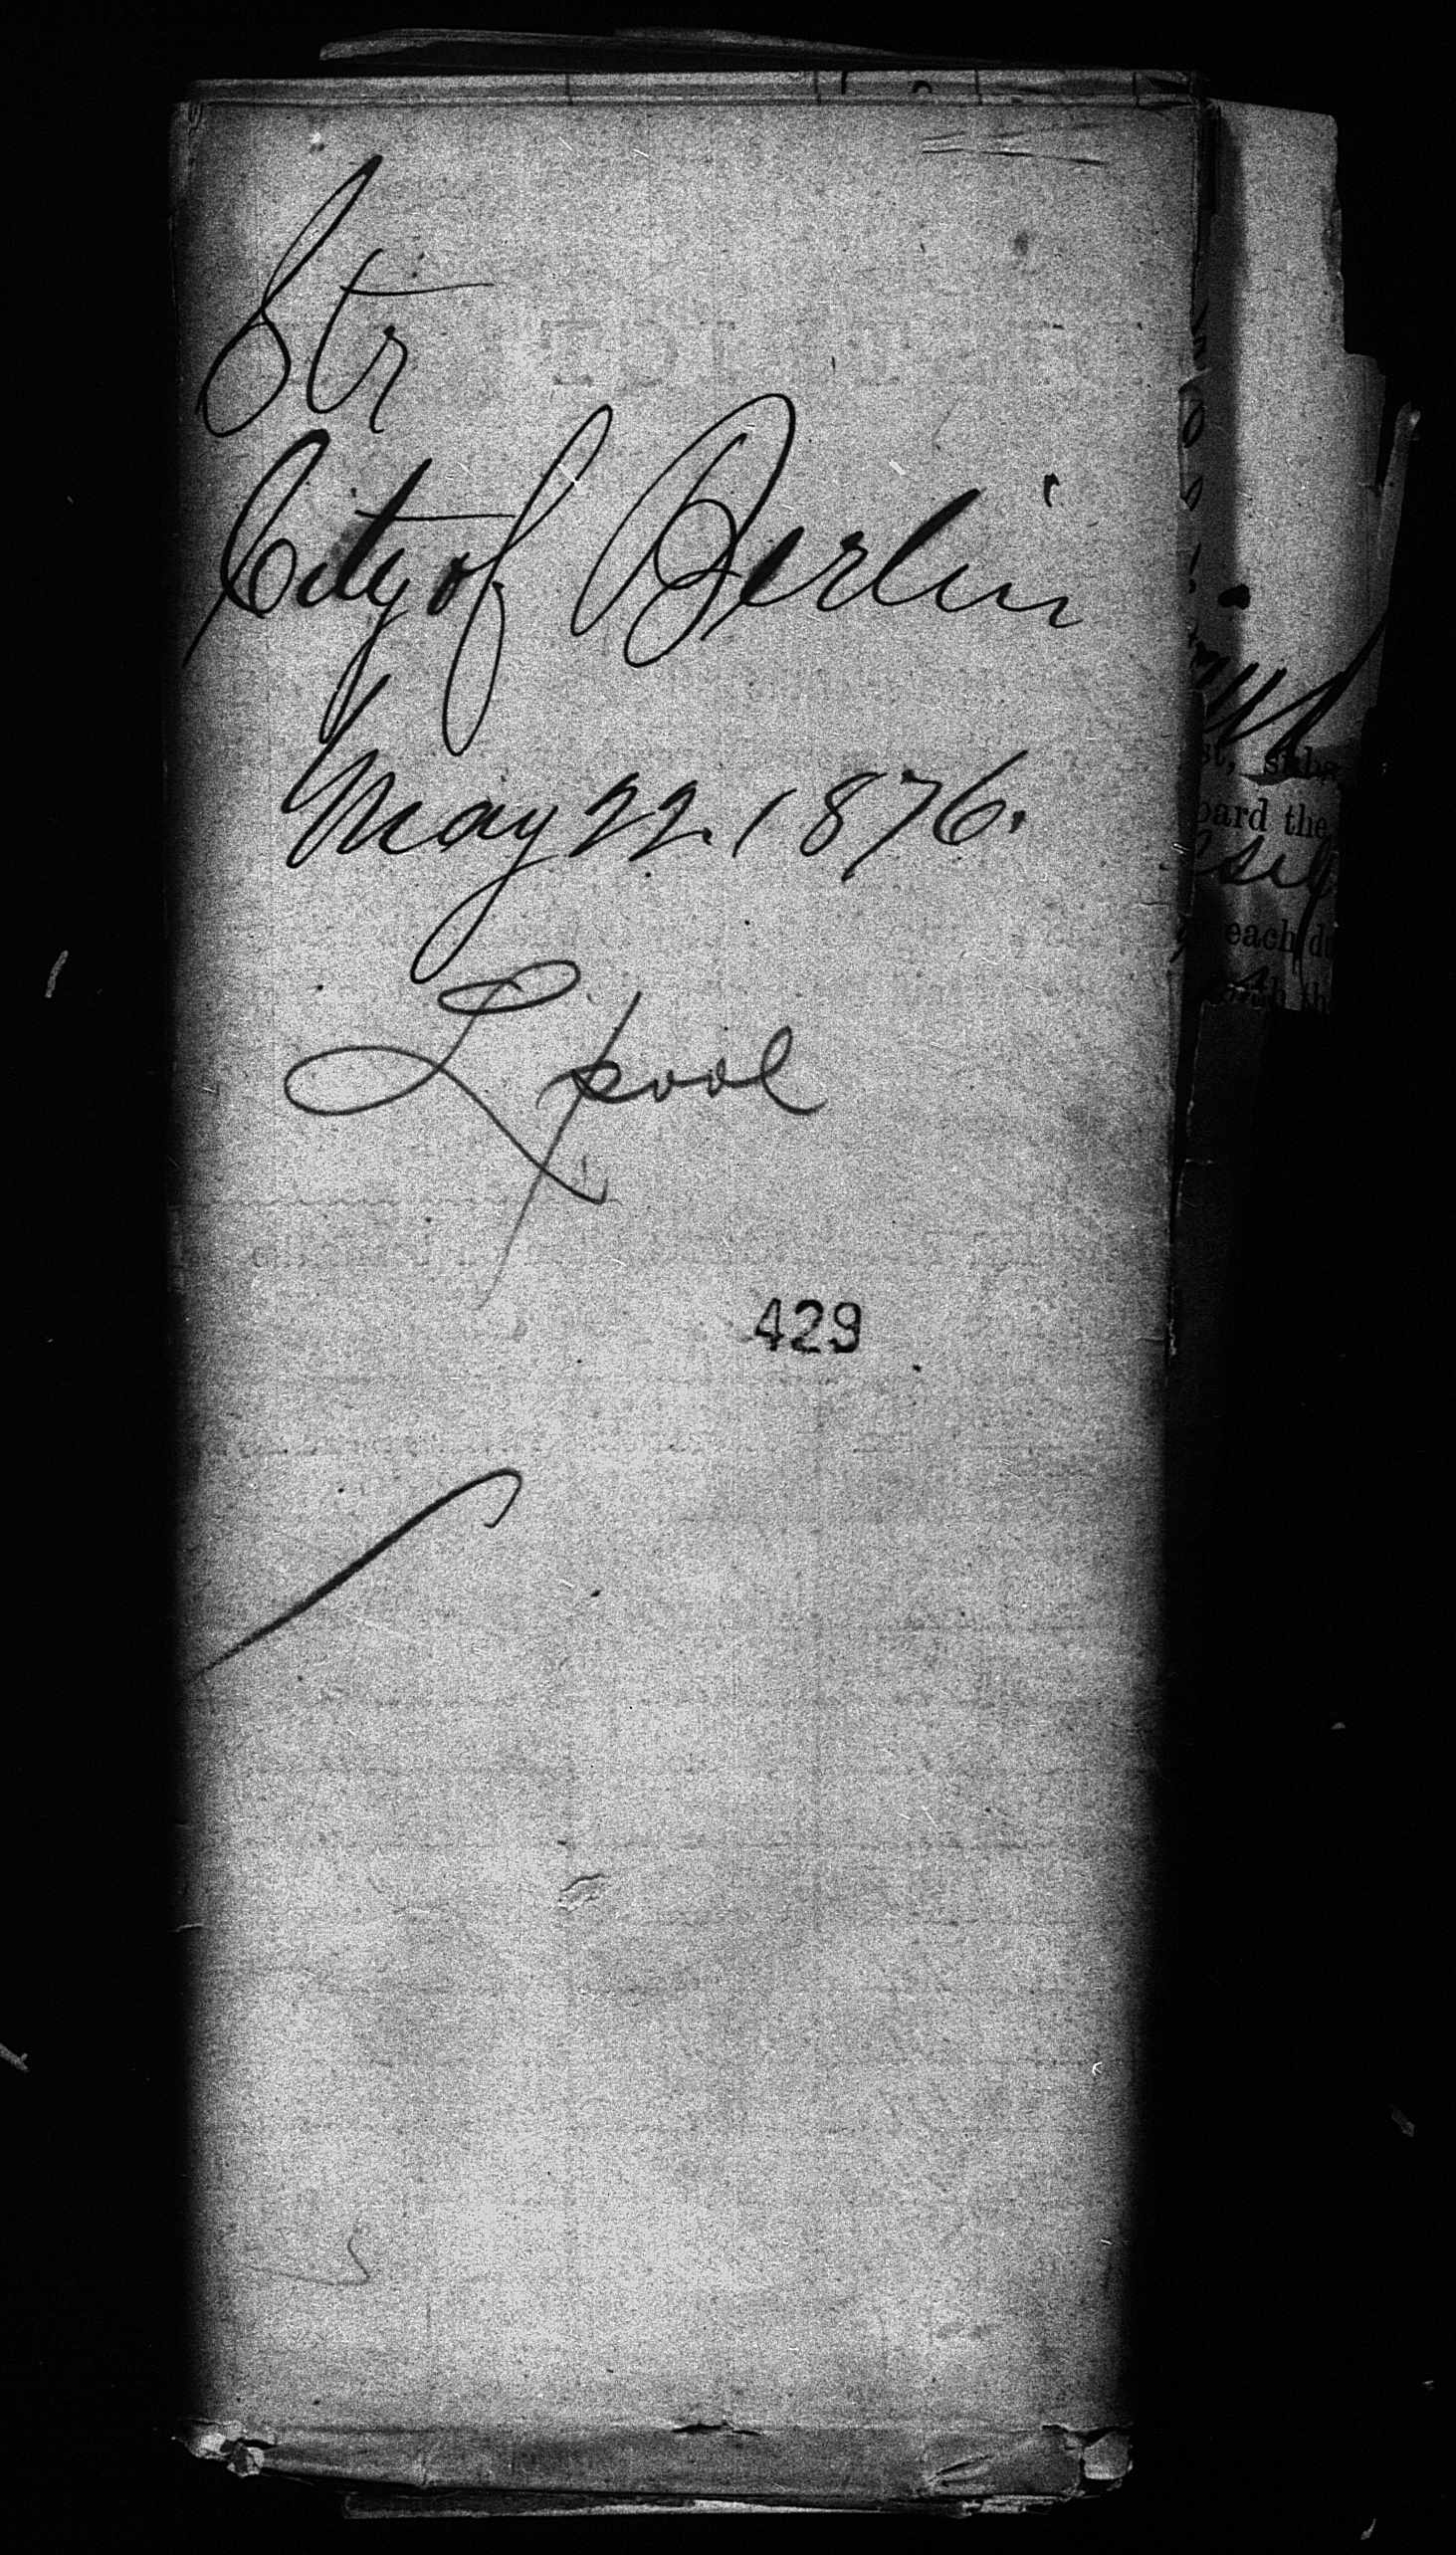 Str
City of Berlin
May 22. 1876.
L'pool
429
board the
each